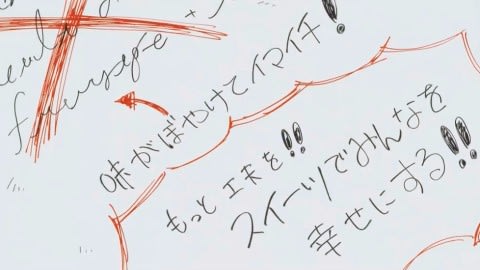 味がぼやけてイマイチ!
もっと工夫を!!
スイーツでみんなを
幸せにする!!